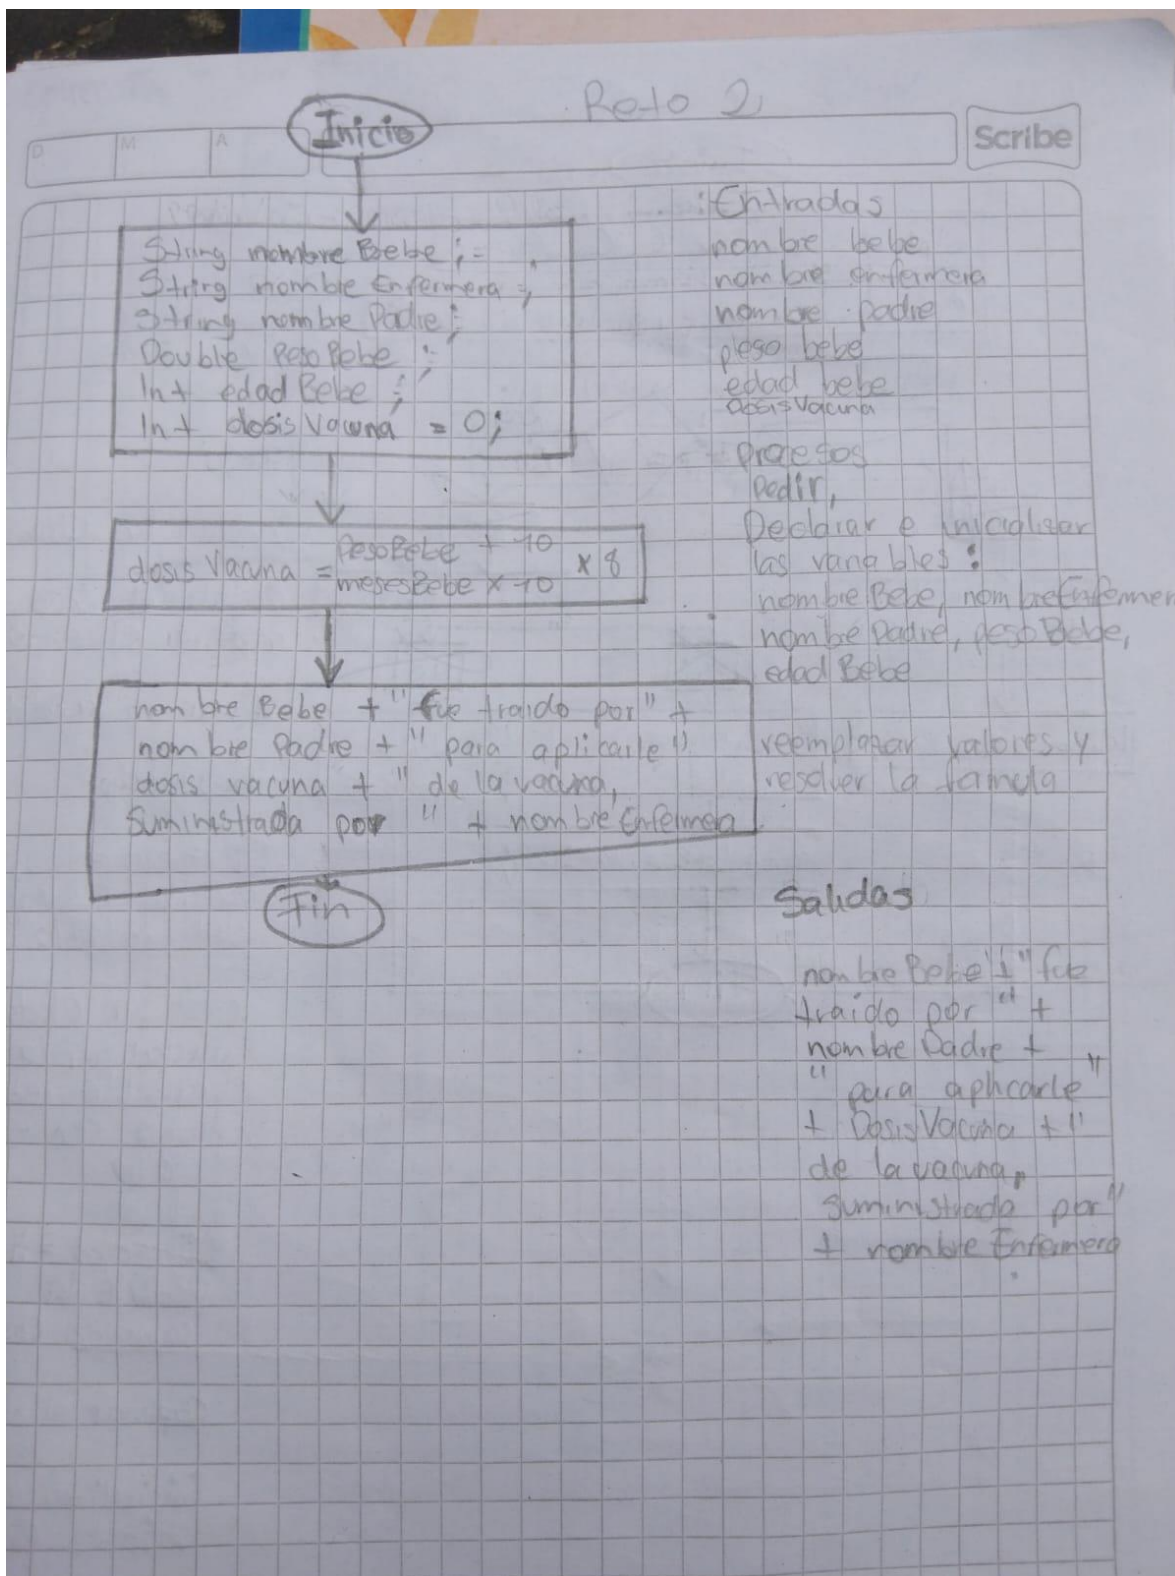 Reto 2
Scribe
D
M
A
Inicio
String nombre Bebe ;=
String nombre Enfermera ;
String nombre Padre ;
Double Peso Bebe ;
Int edad Bebe ;
Int dosis Vacuna = 0;
dosis Vacuna = PesoBebe + 10
mesesBebe x 10
x 8
nombre Bebe + " fue traido por" +
nombre Padre + " para aplicarle "
dosis vacuna + " de la vacuna,
Suministrada por " + nombre Enfermera
Fin
Entradas
nombre bebe
nombre enfermera
nombre padre
peso bebe
edad bebe
dosisVacuna
procesos
Pedir,
Declarar e inicializar
las variables :
nombre Bebe, nombreEnfermer
nombre Padre, peso Bebe,
edad Bebe
reemplazar valores y
resolver la
Salidas
nombre Bebe + " fue
traido por " +
nombre Padre +
" para aplicarle "
+ DosisVacuna + "
de la vacuna,
suministrada por "
+ nombre Enfermera